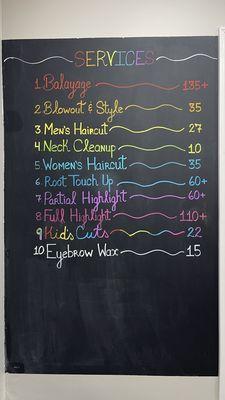 SERVICES
1. Balayage 135+
2 Blowout & Style 35
3 Men's Haircut 27
4 Neck Cleanup 10
5. Women's Haircut 35
6. Root Touch Up 60+
7 Partial Highlight 60+
8 Full Highlight 110+
9 Kid's Cuts 22
10 Eyebrow Wax 15